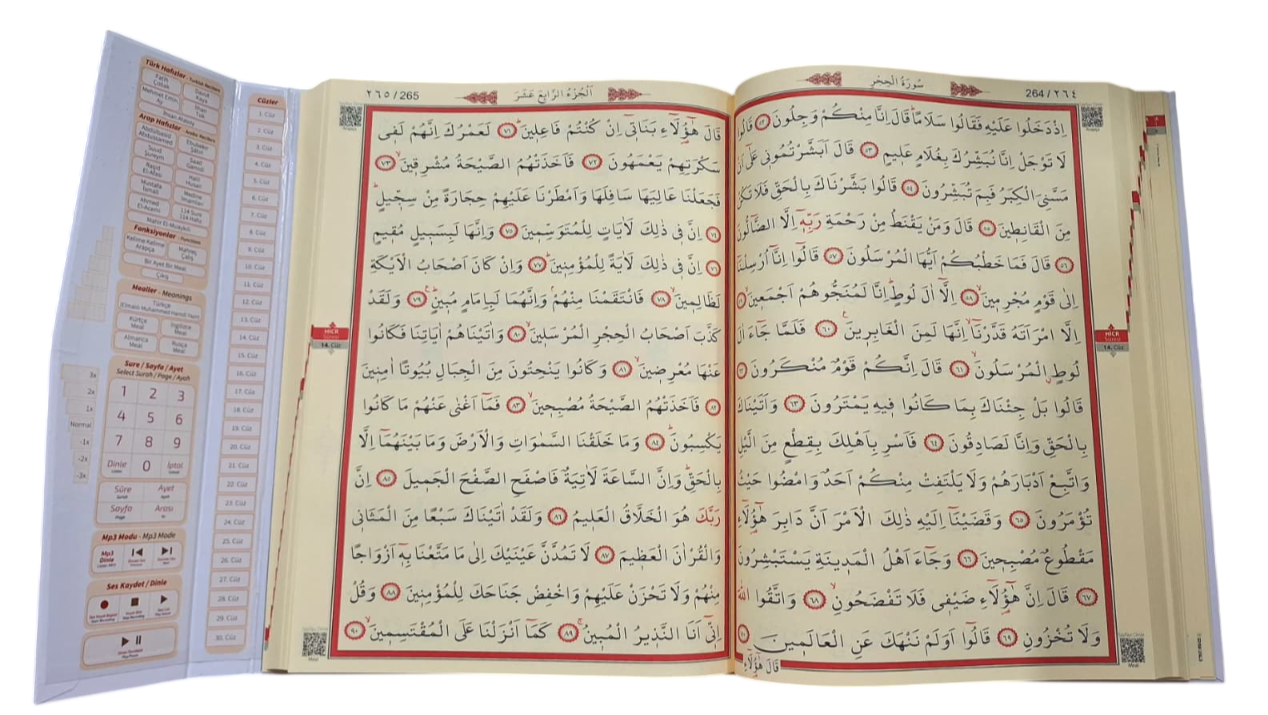 سُورَةُ الْحِجْرِ
264/٢٦٤
اِذْ دَخَلُوا عَلَيْهِ فَقَالُوا سَلَامًا قَالَ اِنَّا مِنْكُمْ وَجِلُونَ ٥٢ قَالُوا
لَا تَوْجَلْ اِنَّا نُبَشِّرُكَ بِغُلَامٍ عَلِيمٍ ٥٣ قَالَ اَبَشَّرْتُمُونِى عَلٰٓى اَنْ
مَسَّنِىَ الْكِبَرُ فَبِمَ تُبَشِّرُونَ ٥٤ قَالُوا بَشَّرْنَاكَ بِالْحَقِّ فَلَا تَكُنْ
مِنَ الْقَانِطِينَ ٥٥ قَالَ وَمَنْ يَقْنَطُ مِنْ رَحْمَةِ رَبِّهِٓ اِلَّا الضَّٓالُّونَ
٥٦ قَالَ فَمَا خَطْبُكُمْ اَيُّهَا الْمُرْسَلُونَ ٥٧ قَالُٓوا اِنَّٓا اُرْسِلْنَٓا
اِلٰى قَوْمٍ مُجْرِمِينَ ٥٨ اِلَّٓا اٰلَ لُوطٍ اِنَّا لَمُنَجُّوهُمْ اَجْمَعِينَ ٥٩
اِلَّا امْرَاَتَهُ قَدَّرْنَٓا اِنَّهَا لَمِنَ الْغَابِرِينَ ٦٠ فَلَمَّا جَٓاءَ اٰلَ
لُوطٍ الْمُرْسَلُونَ ٦١ قَالَ اِنَّكُمْ قَوْمٌ مُنْكَرُونَ ٦٢
قَالُوا بَلْ جِئْنَاكَ بِمَا كَانُوا فِيهِ يَمْتَرُونَ ٦٣ وَاَتَيْنَاكَ
بِالْحَقِّ وَاِنَّا لَصَادِقُونَ ٦٤ فَاَسْرِ بِاَهْلِكَ بِقِطْعٍ مِنَ الَّيْلِ
وَاتَّبِعْ اَدْبَارَهُمْ وَلَا يَلْتَفِتْ مِنْكُمْ اَحَدٌ وَامْضُوا حَيْثُ
تُؤْمَرُونَ ٦٥ وَقَضَيْنَٓا اِلَيْهِ ذٰلِكَ الْاَمْرَ اَنَّ دَابِرَ هٰٓؤُ۬لَٓاءِ
مَقْطُوعٌ مُصْبِحِينَ ٦٦ وَجَٓاءَ اَهْلُ الْمَدِينَةِ يَسْتَبْشِرُونَ
٦٧ قَالَ اِنَّ هٰٓؤُ۬لَٓاءِ ضَيْفِى فَلَا تَفْضَحُونِ ٦٨ وَاتَّقُوا اللّٰهَ
وَلَا تُخْزُونِ ٦٩ قَالُٓوا اَوَلَمْ نَنْهَكَ عَنِ الْعَالَمِينَ ٧٠
قَالَ هٰٓؤُ۬لَٓاءِ
HİCR
14. Cüz
اَلْجُزْءُ الرَّابِعَ عَشَرَ
٢٦٥/265
قَالَ هٰٓؤُ۬لَٓاءِ بَنَاتِٓى اِنْ كُنْتُمْ فَاعِلِينَ ٧١ لَعَمْرُكَ اِنَّهُمْ لَفِى
سَكْرَتِهِمْ يَعْمَهُونَ ٧٢ فَاَخَذَتْهُمُ الصَّيْحَةُ مُشْرِقِينَ ٧٣
فَجَعَلْنَا عَالِيَهَا سَافِلَهَا وَاَمْطَرْنَا عَلَيْهِمْ حِجَارَةً مِنْ سِجِّيلٍ
٧٤ اِنَّ فِى ذٰلِكَ لَاٰيَاتٍ لِلْمُتَوَسِّمِينَ ٧٥ وَاِنَّهَا لَبِسَبِيلٍ مُقِيمٍ
٧٦ اِنَّ فِى ذٰلِكَ لَاٰيَةً لِلْمُؤْمِنِينَ ٧٧ وَاِنْ كَانَ اَصْحَابُ الْاَيْكَةِ
لَظَالِمِينَ ٧٨ فَانْتَقَمْنَا مِنْهُمْ وَاِنَّهُمَا لَبِاِمَامٍ مُبِينٍ ٧٩ وَلَقَدْ
كَذَّبَ اَصْحَابُ الْحِجْرِ الْمُرْسَلِينَ ٨٠ وَاٰتَيْنَاهُمْ اٰيَاتِنَا فَكَانُوا
عَنْهَا مُعْرِضِينَ ٨١ وَكَانُوا يَنْحِتُونَ مِنَ الْجِبَالِ بُيُوتًا اٰمِنِينَ
٨٢ فَاَخَذَتْهُمُ الصَّيْحَةُ مُصْبِحِينَ ٨٣ فَمَٓا اَغْنٰى عَنْهُمْ مَا كَانُوا
يَكْسِبُونَ ٨٤ وَمَا خَلَقْنَا السَّمٰوَاتِ وَالْاَرْضَ وَمَا بَيْنَهُمَٓا اِلَّا
بِالْحَقِّ وَاِنَّ السَّاعَةَ لَاٰتِيَةٌ فَاصْفَحِ الصَّفْحَ الْجَمِيلَ ٨٥ اِنَّ
رَبَّكَ هُوَ الْخَلَّاقُ الْعَلِيمُ ٨٦ وَلَقَدْ اٰتَيْنَاكَ سَبْعًا مِنَ الْمَثَانِى
وَالْقُرْاٰنَ الْعَظِيمَ ٨٧ لَا تَمُدَّنَّ عَيْنَيْكَ اِلٰى مَا مَتَّعْنَا بِهِٓ اَزْوَاجًا
مِنْهُمْ وَلَا تَحْزَنْ عَلَيْهِمْ وَاخْفِضْ جَنَاحَكَ لِلْمُؤْمِنِينَ ٨٨ وَقُلْ
اِنِّٓى اَنَا النَّذِيرُ الْمُبِينُ ٨٩ كَمَٓا اَنْزَلْنَا عَلَى الْمُقْتَسِمِينَ ٩٠
HİCR
14. Cüz
Türk Hafızlar
Fatih Çollak
Davut Kaya
Mehmet Emin Ay
İlhan Tok
İshak
Arap Hafızlar
Abdulbasid Abdussamed
Suud Şureym
Saad Gamidi
Mustafa İsmail
Ahmed El-Acemi
Fonksiyonlar - Functions
Kelime Kelime Arapça
Bir Ayet Bir Meal
Çıkış
Mealler - Meanings
Türkçe
(Elmalılı Muhammed Hamdi Yazır)
Kürtçe Meal
İngilizce Meal
Almanca Meal
Rusça Meal
Sure / Sayfa / Ayet
Select Surah / Page / Ayah
1 2 3
4 5 6
7 8 9
Dinle 0 İptal
Sûre Ayet
Sayfa Arası
Mp3 Modu - Mp3 Mode
Mp3 Dinle
Ses Kaydet / Dinle
3x
2x
1x
Normal
-1x
-2x
-3x
Cüzler
1. Cüz
2. Cüz
3. Cüz
4. Cüz
5. Cüz
6. Cüz
7. Cüz
8. Cüz
9. Cüz
10. Cüz
11. Cüz
12. Cüz
13. Cüz
14. Cüz
15. Cüz
16. Cüz
17. Cüz
18. Cüz
19. Cüz
20. Cüz
21. Cüz
22. Cüz
23. Cüz
24. Cüz
25. Cüz
26. Cüz
27. Cüz
28. Cüz
29. Cüz
30. Cüz